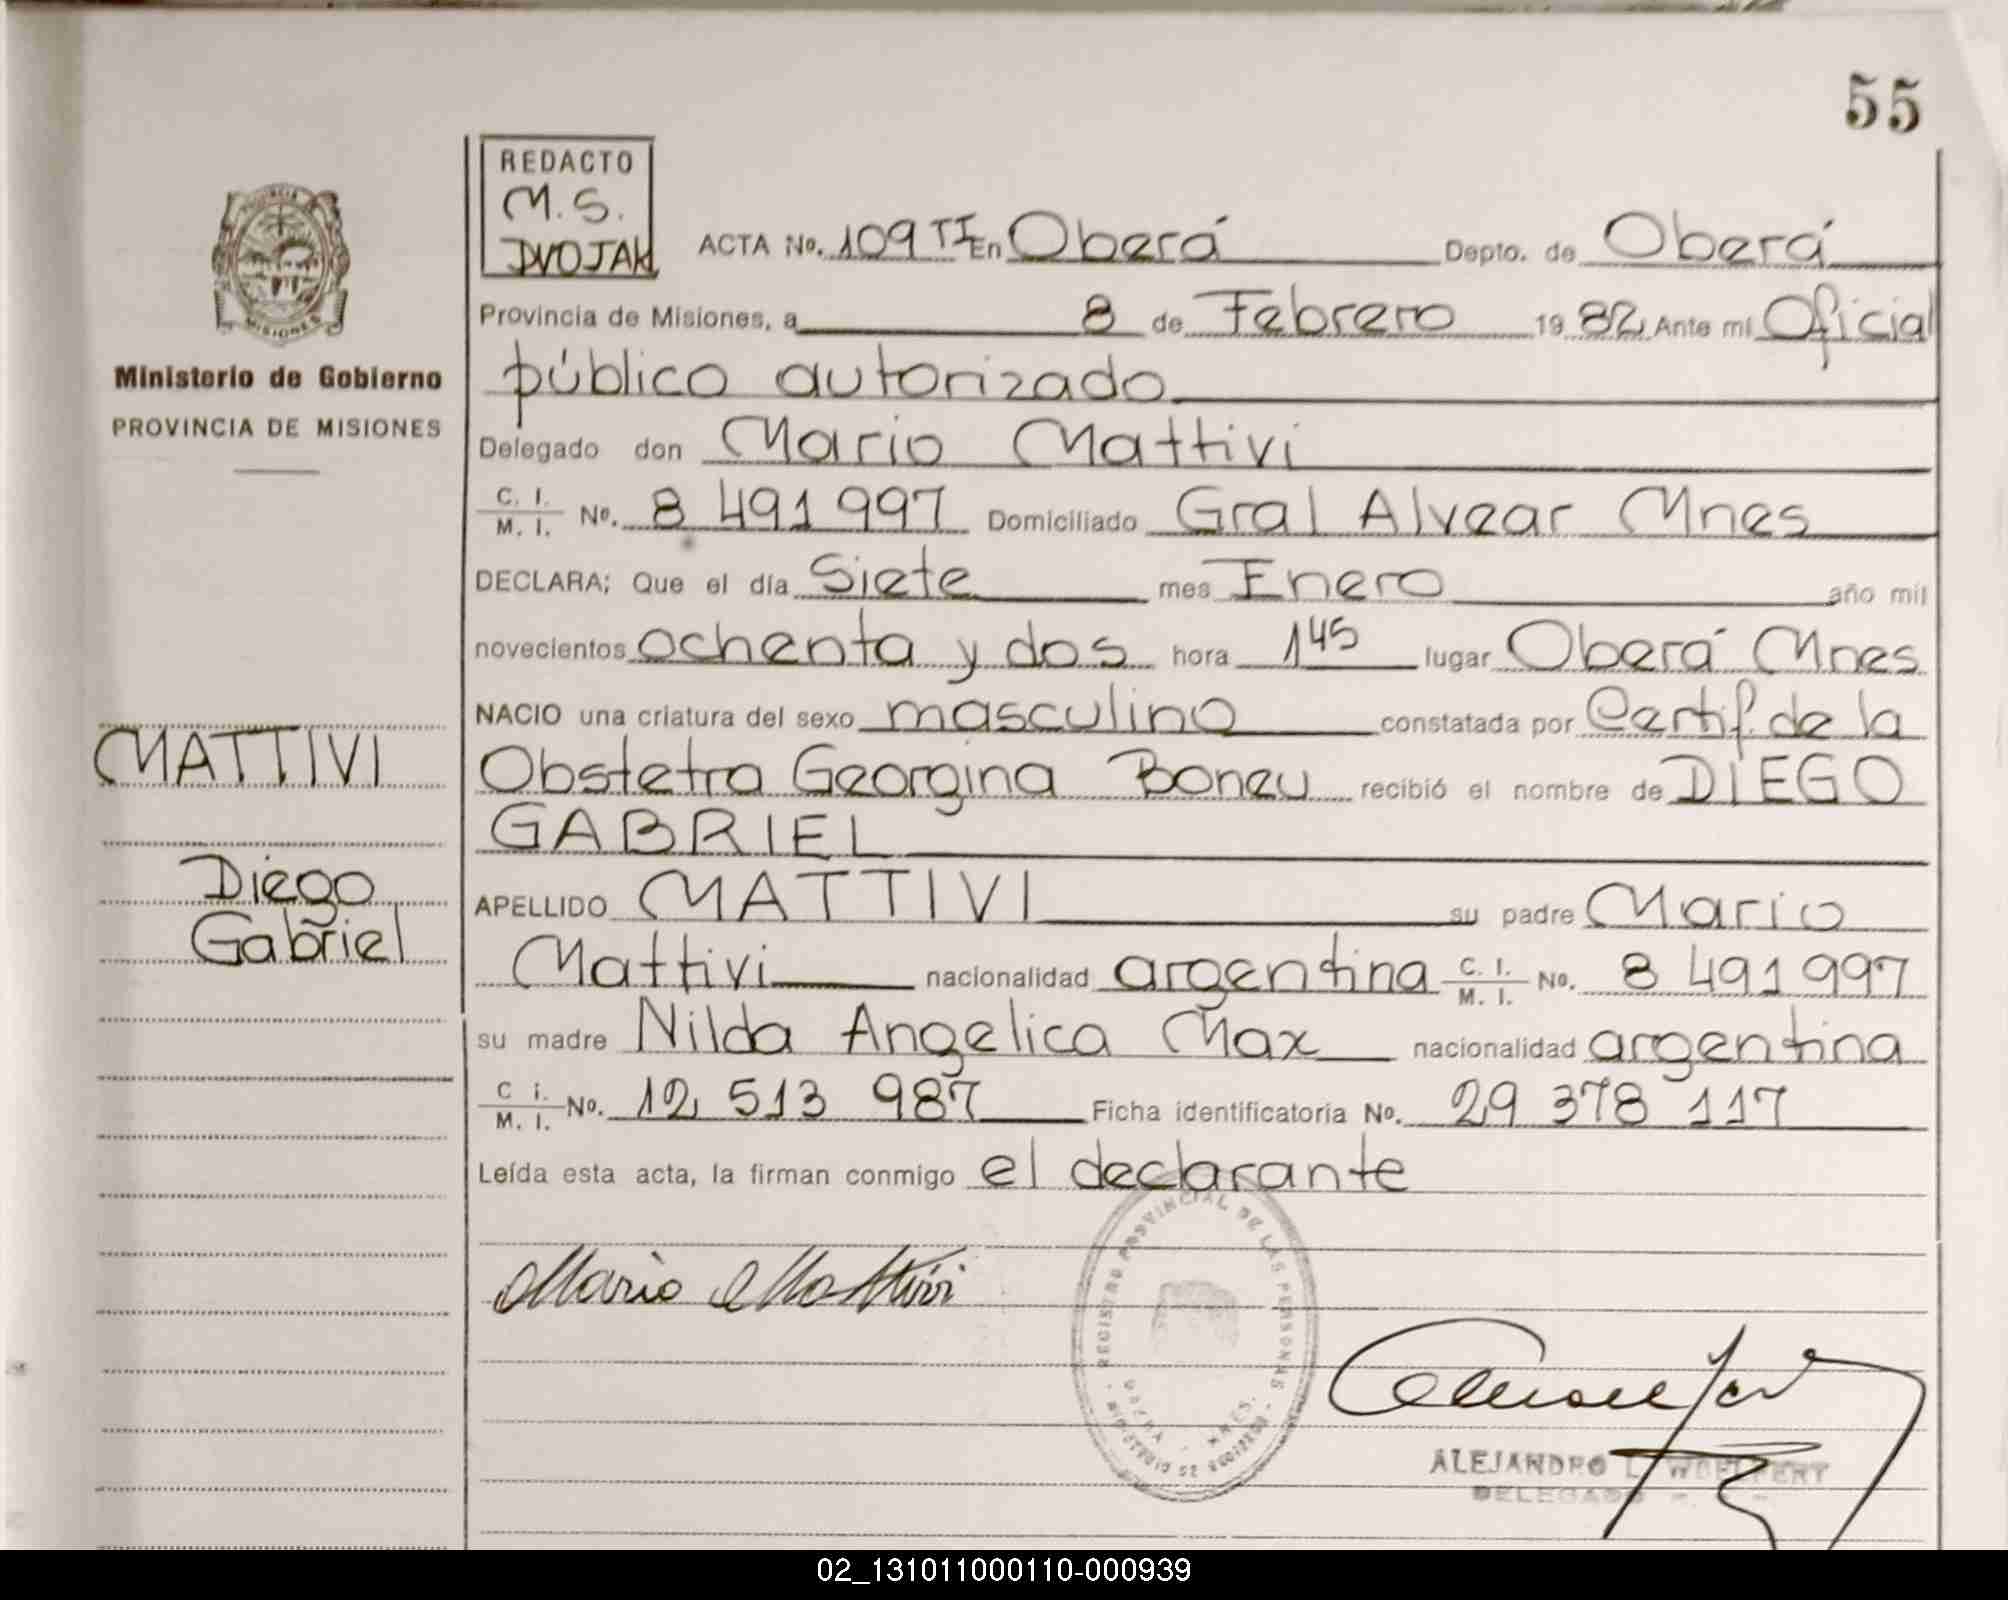 55
REDACTO
M. S.
DVOJAK
PROVINCIA
MISIONES
Ministerio de Gobierno
PROVINCIA DE MISIONES
ACTA No. 109 TI En Oberá Depto. de Oberá
Provincia de Misiones, a 8 de Febrero 1982 Ante mi Oficial
público autorizado
Delegado don Mario Mattivi
C. I. / M. I. No. 8 491 997 Domiciliado Gral Alvear Mnes
DECLARA; Que el día Siete mes Enero año mil
novecientos ochenta y dos hora 1 45 lugar Oberá Mnes
NACIO una criatura del sexo masculino constatada por Certif. de la
Obstetra Georgina Boneu recibió el nombre de DIEGO
GABRIEL
MATTIVI
Diego
Gabriel
APELLIDO MATTIVI su padre Mario
Mattivi nacionalidad argentina C. I. / M. I. No. 8 491 997
su madre Nilda Angelica Max nacionalidad argentina
C i. / M. I. No. 12 513 987 Ficha identificatoria No. 29 378 117
Leída esta acta, la firman conmigo el declarante
Mario Mattivi
REGISTRO PROVINCIAL DE LAS PERSONAS
MNES.
ALEJANDRO L. WOELFERT
DELEGADO
02_131011000110-000939